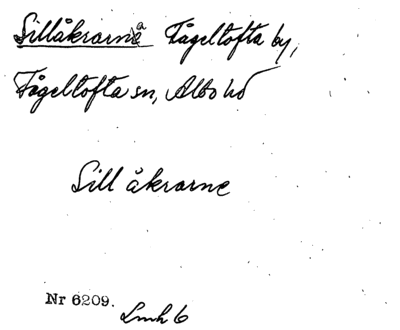 Sillåkrarna Fågeltofta by,
Fågeltofta sn, Albo hd
Sill åkrarne
Nr 6209.
Lmh 6